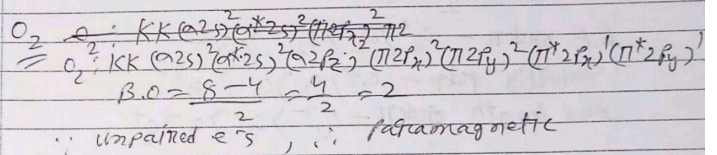 O₂ : KK (σ2s)² (σ*2s)² (π2pₓ)² π2
O₂ : KK (σ2s)² (σ*2s)² (σ2p_z)² (π2pₓ)² (π2p_y)² (π*2pₓ)¹ (π*2p_y)¹
B.O = 8-4/2 = 4/2 = 2
∵ unpaired e⁻s, ∴ paramagnetic